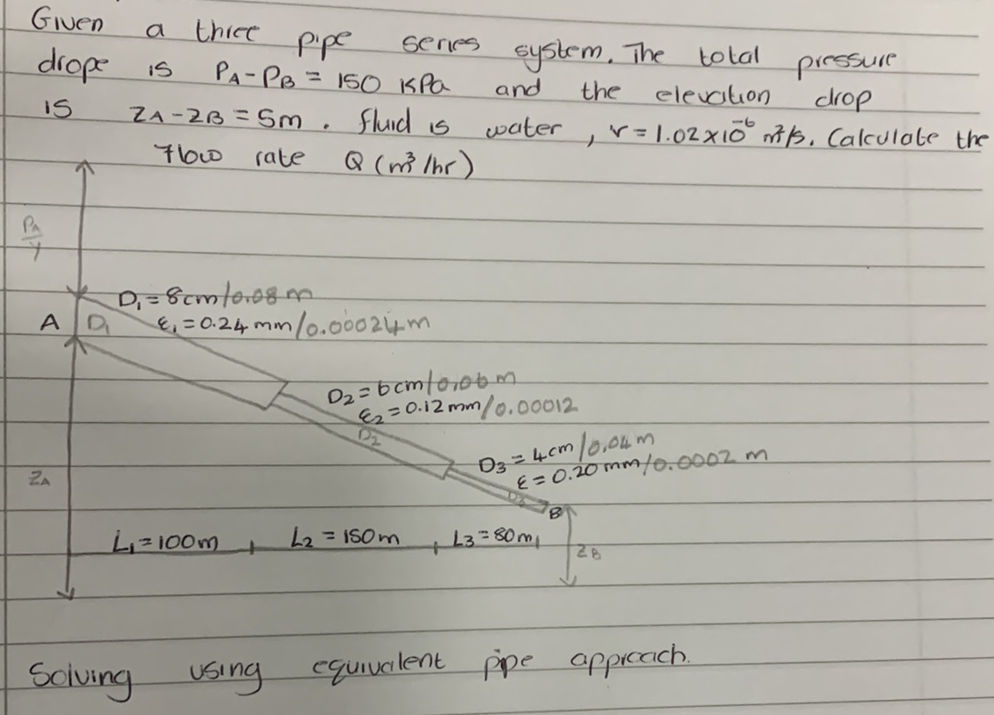 Given a three pipe series system. The total pressure
drope is PA-PB = 150 KPa and the elevation drop
is ZA-ZB = 5m. fluid is water, v = 1.02x10⁻⁶ m²/s. Calculate the
flow rate Q (m³/hr)
PA/γ
D₁ = 8cm/0.08m
A D₁ ε₁ = 0.24mm/0.00024m
D₂ = 6cm/0.06m
ε₂ = 0.12mm/0.00012
D₂
D₃ = 4cm/0.04m
ε = 0.20mm/0.0002 m
ZA
D₃
B
L₁ = 100m , L₂ = 150m , L₃ = 80m,
ZB
Solving using equivalent pipe approach.